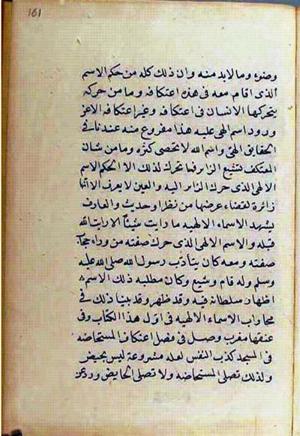 161
وضوء وما لا بد منه وان ذلك كله من حكم الاسم
الذى اقام معه فى هذه اعتكافه وما من حركة
يتحركها الانسان فى اعتكافه وغير اعتكافه الا عن
ورود اسم الهى عليه هذا مفروغ منه عندنا فى
الحقائق الهى واسماء الله لا تحصى كثرة وما من شان
المعتكف تشييع الزائر فما تحرك لذلك الا لحكم الاسم
الالهى الذى حرك الزائر اليه والعين لا يعرف الا انها
زائرة لقضاء غرضها من نفر او حديث والعارف
يشهد الاسماء الالهية ما رايت شيئا الا رايت الله
قبله والاسم الالهى الذى حرك صفته من وراء حجاب
صفته ومعه كان يتادب رسول الله صلى الله عليه
وسلم وله قام وشيع وكان مطلبه ذلك الاسم
اظهار سلطانه فيه وقد ظهر وقد بينا ذلك فى
محاورات الاسماء الالهية فى اول هذا الكتاب وفى
عنقا مغرب وصل فى فصل اعتكاف المستحاضة
فى المسجد كذب النفس لعلة مشروعة ليس بحيض
ولذلك تصلى المستحاضة ولا تصلى الحايض